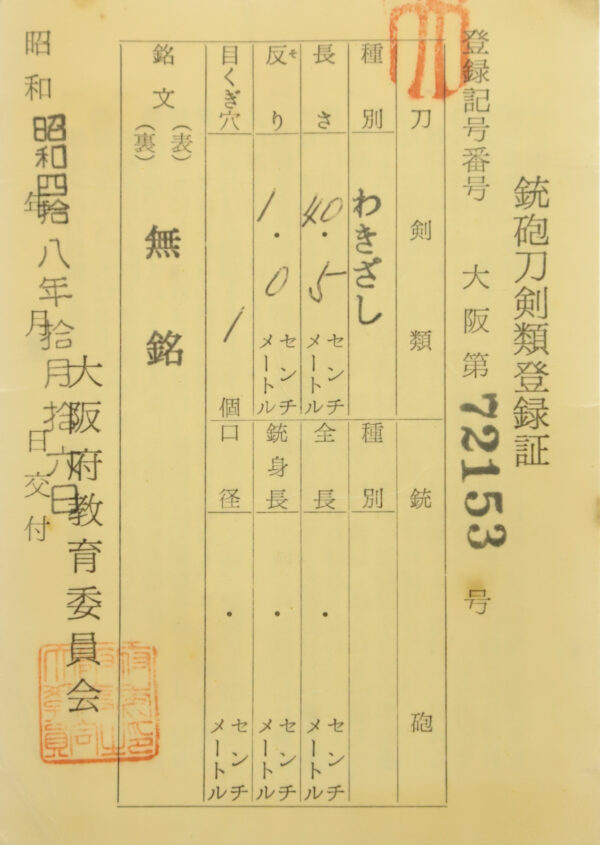 銃砲刀剣類登録証
登録記号番号 大阪第72153号
刀剣類
種別 わきざし
長さ 40.5 センチメートル
反り 1.0 センチメートル
そ
目くぎ穴 1 個
銘文 (表) (裏) 無銘
銃砲
種別
全長 ・ センチメートル
銃身長 ・ センチメートル
口径 ・ センチメートル
昭和 年 月 日交付
昭和四拾八年拾月拾六日
大阪府教育委員会